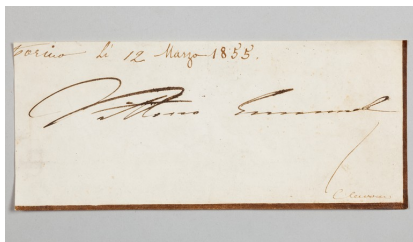 Torino li 12 Marzo 1855.
Vittorio Emanuele
C. Cavour